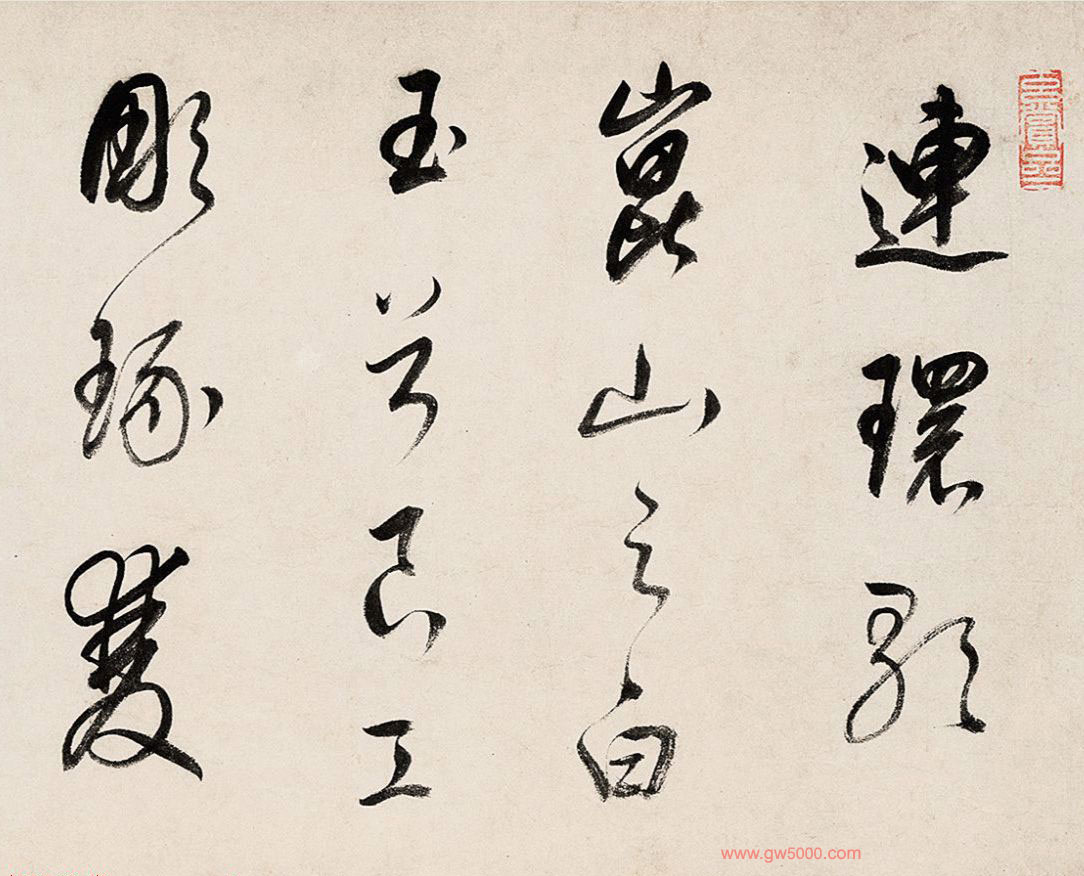 連環歌
崑山之白
玉兮良工
彫琢雙
www.gw5000.com